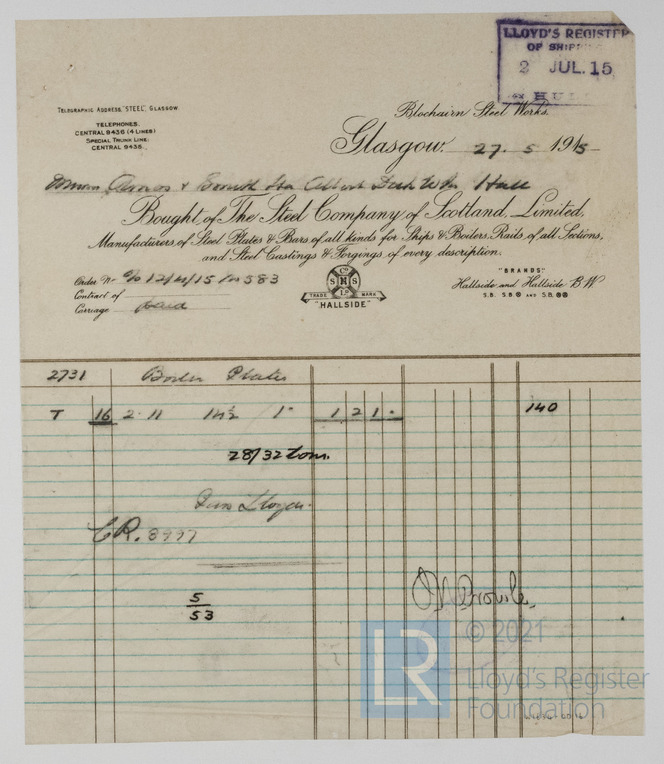 LLOYD'S REGISTER
OF SHIPPING
2 JUL. 15
HULL
TELEGRAPHIC ADDRESS, "STEEL", GLASGOW.
TELEPHONES.
CENTRAL 9436 (4 LINES)
SPECIAL TRUNK LINE:
CENTRAL 9435.
Blochairn Steel Works.
Glasgow. 27. 5 1915
& Smith Albert Dock Hull
Bought of The Steel Company of Scotland, Limited,
Manufacturers of Steel Plates & Bars of all kinds for Ships & Boilers, Rails of all Sections,
and Steel Castings & Forgings of every description.
Order No 12/4/15 583
Contract of
Carriage paid
Co
S H S
Ld
TRADE MARK
"HALLSIDE"
"BRANDS"
Hallside and Hallside B.W
S.B. S.B. AND S.B.
2731 Boiler Plates
T 16 2.11 14½ 1" 1 2 1 - 140
28/32 tons.
Lloyds.
CR. 8997
5
53
LR
© 2021
Lloyd's Register
Foundation